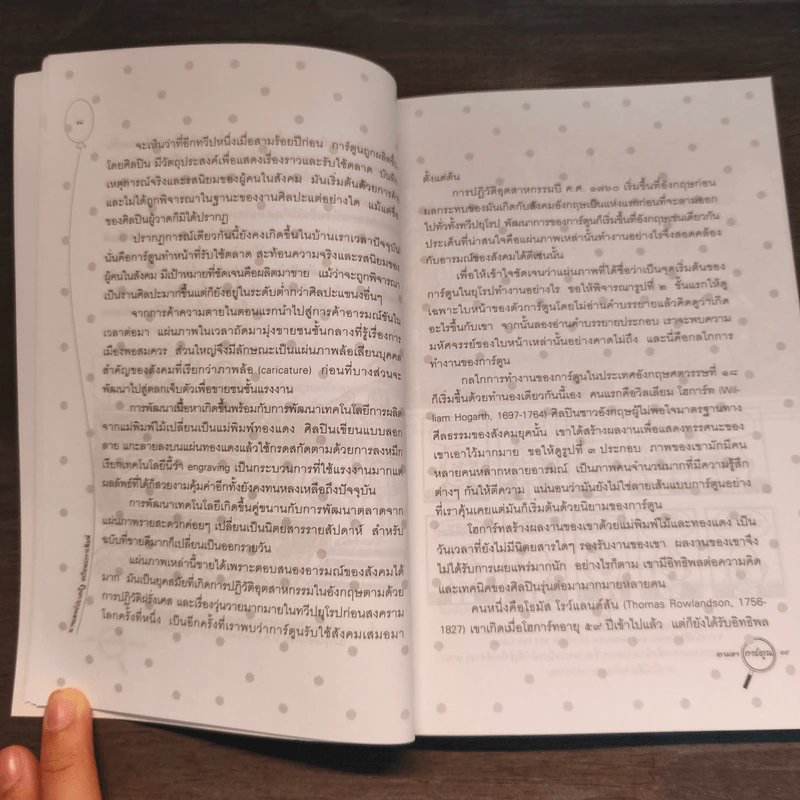 ๑๘
จะเห็นว่าที่อีกทวีปหนึ่งเมื่อสามร้อยปีก่อน การ์ตูนถูกผลิตขึ้น
โดยศิลปิน มีวัตถุประสงค์เพื่อแสดงเรื่องราวและรับใช้ตลาด บันทึก
เหตุการณ์จริงและรสนิยมของผู้คนในสังคม มันเริ่มต้นด้วยการค้า
และไม่ได้ถูกพิจารณาในฐานะของงานศิลปะแต่อย่างใด แม้แต่ชื่อ
ของศิลปินผู้วาดก็มิได้ปรากฏ
ปรากฏการณ์เดียวกันนี้ยังคงเกิดขึ้นในบ้านเราเวลาปัจจุบัน
นั่นคือการ์ตูนทำหน้าที่รับใช้ตลาด สะท้อนความจริงและรสนิยมของ
ผู้คนในสังคม มีเป้าหมายที่ชัดเจนคือผลิตมาขาย แม้ว่าจะถูกพิจารณา
เป็นงานศิลปะมากขึ้นแต่ก็ยังอยู่ในระดับต่ำกว่าศิลปะแขนงอื่นๆ
จากการค้าความตายในตอนแรกนำไปสู่การค้าอารมณ์ขันใน
เวลาต่อมา แผ่นภาพในเวลาถัดมามุ่งขายชนชั้นกลางที่รู้เรื่องการ
เมืองพอสมควร ส่วนใหญ่จึงมีลักษณะเป็นแผ่นภาพล้อเลียนบุคคล
สำคัญของสังคมที่เรียกว่าภาพล้อ (caricature) ก่อนที่บางส่วนจะ
พัฒนาไปสู่ตลกเจ็บตัวเพื่อขายชนชั้นแรงงาน
การพัฒนาเนื้อหาเกิดขึ้นพร้อมกับการพัฒนาเทคโนโลยีการผลิต
จากแม่พิมพ์ไม้เปลี่ยนเป็นแม่พิมพ์ทองแดง ศิลปินเขียนแบบลอก
ลาย แกะลายลงบนแผ่นทองแดงแล้วใช้กรดสกัดตามด้วยการลงหมึก
เรียกเทคโนโลยีนี้ว่า engraving เป็นกระบวนการที่ใช้แรงงานมากแต่
ผลลัพธ์ที่ได้ก็สวยงามคุ้มค่าอีกทั้งยังคงทนหลงเหลือถึงปัจจุบัน
การพัฒนาเทคโนโลยีเกิดขึ้นคู่ขนานกับการพัฒนาตลาดจาก
แผ่นภาพรายสะดวกค่อยๆ เปลี่ยนเป็นนิตยสารรายสัปดาห์ สำหรับ
ฉบับที่ขายดีมากก็เปลี่ยนเป็นออกรายวัน
แผ่นภาพเหล่านี้ขายได้เพราะตอบสนองอารมณ์ของสังคมได้
มาก มันเป็นยุคสมัยที่เกิดการปฏิวัติอุตสาหกรรมในอังกฤษตามด้วย
การปฏิวัติฝรั่งเศส และเรื่องวุ่นวายมากมายในทวีปยุโรปก่อนสงคราม
โลกครั้งที่หนึ่ง เป็นอีกครั้งที่เราพบว่าการ์ตูนรับใช้สังคมเสมอมา
ตั้งแต่ต้น
การปฏิวัติอุตสาหกรรมปี ค.ศ. ๑๗๖๐ เริ่มขึ้นที่อังกฤษก่อน
ผลกระทบของมันเกิดกับสังคมอังกฤษเป็นแห่งแรกก่อนที่จะลามออก
ไปทั่วทั้งทวีปยุโรป พัฒนาการของการ์ตูนก็เริ่มขึ้นที่อังกฤษเช่นเดียวกัน
ประเด็นที่น่าสนใจคือแผ่นภาพเหล่านั้นทำงานอย่างไรจึงสอดคล้อง
กับอารมณ์ของสังคมได้ดีเช่นนั้น
เพื่อให้เข้าใจชัดเจนว่าแผ่นภาพที่ได้ชื่อว่าเป็นจุดเริ่มต้นของ
การ์ตูนในยุโรปทำงานอย่างไร ขอให้พิจารณารูปที่ ๒ ขั้นแรกให้ดู
เฉพาะใบหน้าของตัวการ์ตูนโดยไม่อ่านคำบรรยายแล้วคิดดูว่าเกิด
อะไรขึ้นกับเขา จากนั้นลองอ่านคำบรรยายประกอบ เราจะพบความ
มหัศจรรย์ของใบหน้าเหล่านั้นอย่างคาดไม่ถึง และนี่คือกลไกการ
ทำงานของการ์ตูน
กลไกการทำงานของการ์ตูนในประเทศอังกฤษศตวรรษที่ ๑๘
ก็เริ่มขึ้นด้วยทำนองเดียวกันนี้เอง คนแรกคือวิลเลียม โฮการ์ท (Wil-
liam Hogarth, 1697-1764) ศิลปินชาวอังกฤษผู้ไม่พอใจมาตรฐานทาง
ศีลธรรมของสังคมยุคนั้น เขาได้สร้างผลงานเพื่อแสดงทรรศนะของ
เขาเอาไว้มากมาย ขอให้ดูรูปที่ ๓ ประกอบ ภาพของเขามักมีคน
หลายคนหลากหลายอารมณ์ เป็นภาพคนจำนวนมากที่มีความรู้สึก
ต่างๆ กันให้ตีความ แน่นอนว่ามันยังไม่ใช่ลายเส้นแบบการ์ตูนอย่าง
ที่เราคุ้นเคยแต่มันก็เริ่มต้นด้วยนิยามของการ์ตูน
โฮการ์ทสร้างผลงานของเขาด้วยแม่พิมพ์ไม้และทองแดง เป็น
วันเวลาที่ยังไม่มีนิตยสารใดๆ รองรับงานของเขา ผลงานของเขาจึง
ไม่ได้รับการเผยแพร่มากนัก อย่างไรก็ตาม เขามีอิทธิพลต่อความคิด
และเทคนิคของศิลปินรุ่นต่อมามากมายหลายคน
คนหนึ่งคือโธมัส โรว์แลนด์สัน (Thomas Rowlandson, 1756-
1827) เขาเกิดเมื่อโฮการ์ทอายุ ๕๙ ปีเข้าไปแล้ว แต่ก็ยังได้รับอิทธิพล
การ์ตูน ๑๙